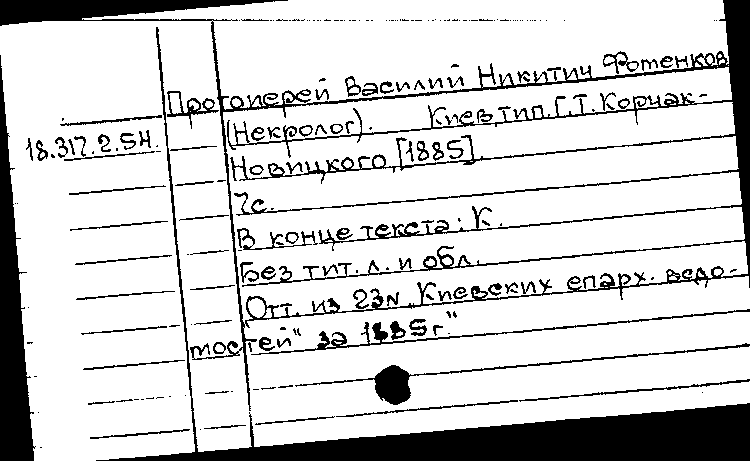 Протоиерей Василий Никитич Фотенков
18.317.2.54. (Некролог). Киев, тип. Г.Т. Корчак-
Новицкого, [1885].
7с.
В конце текста: К.
Без тит. л. и обл.
Отт. из 23№ „Киевских епарх. ведо-
мостей" за 1885г."